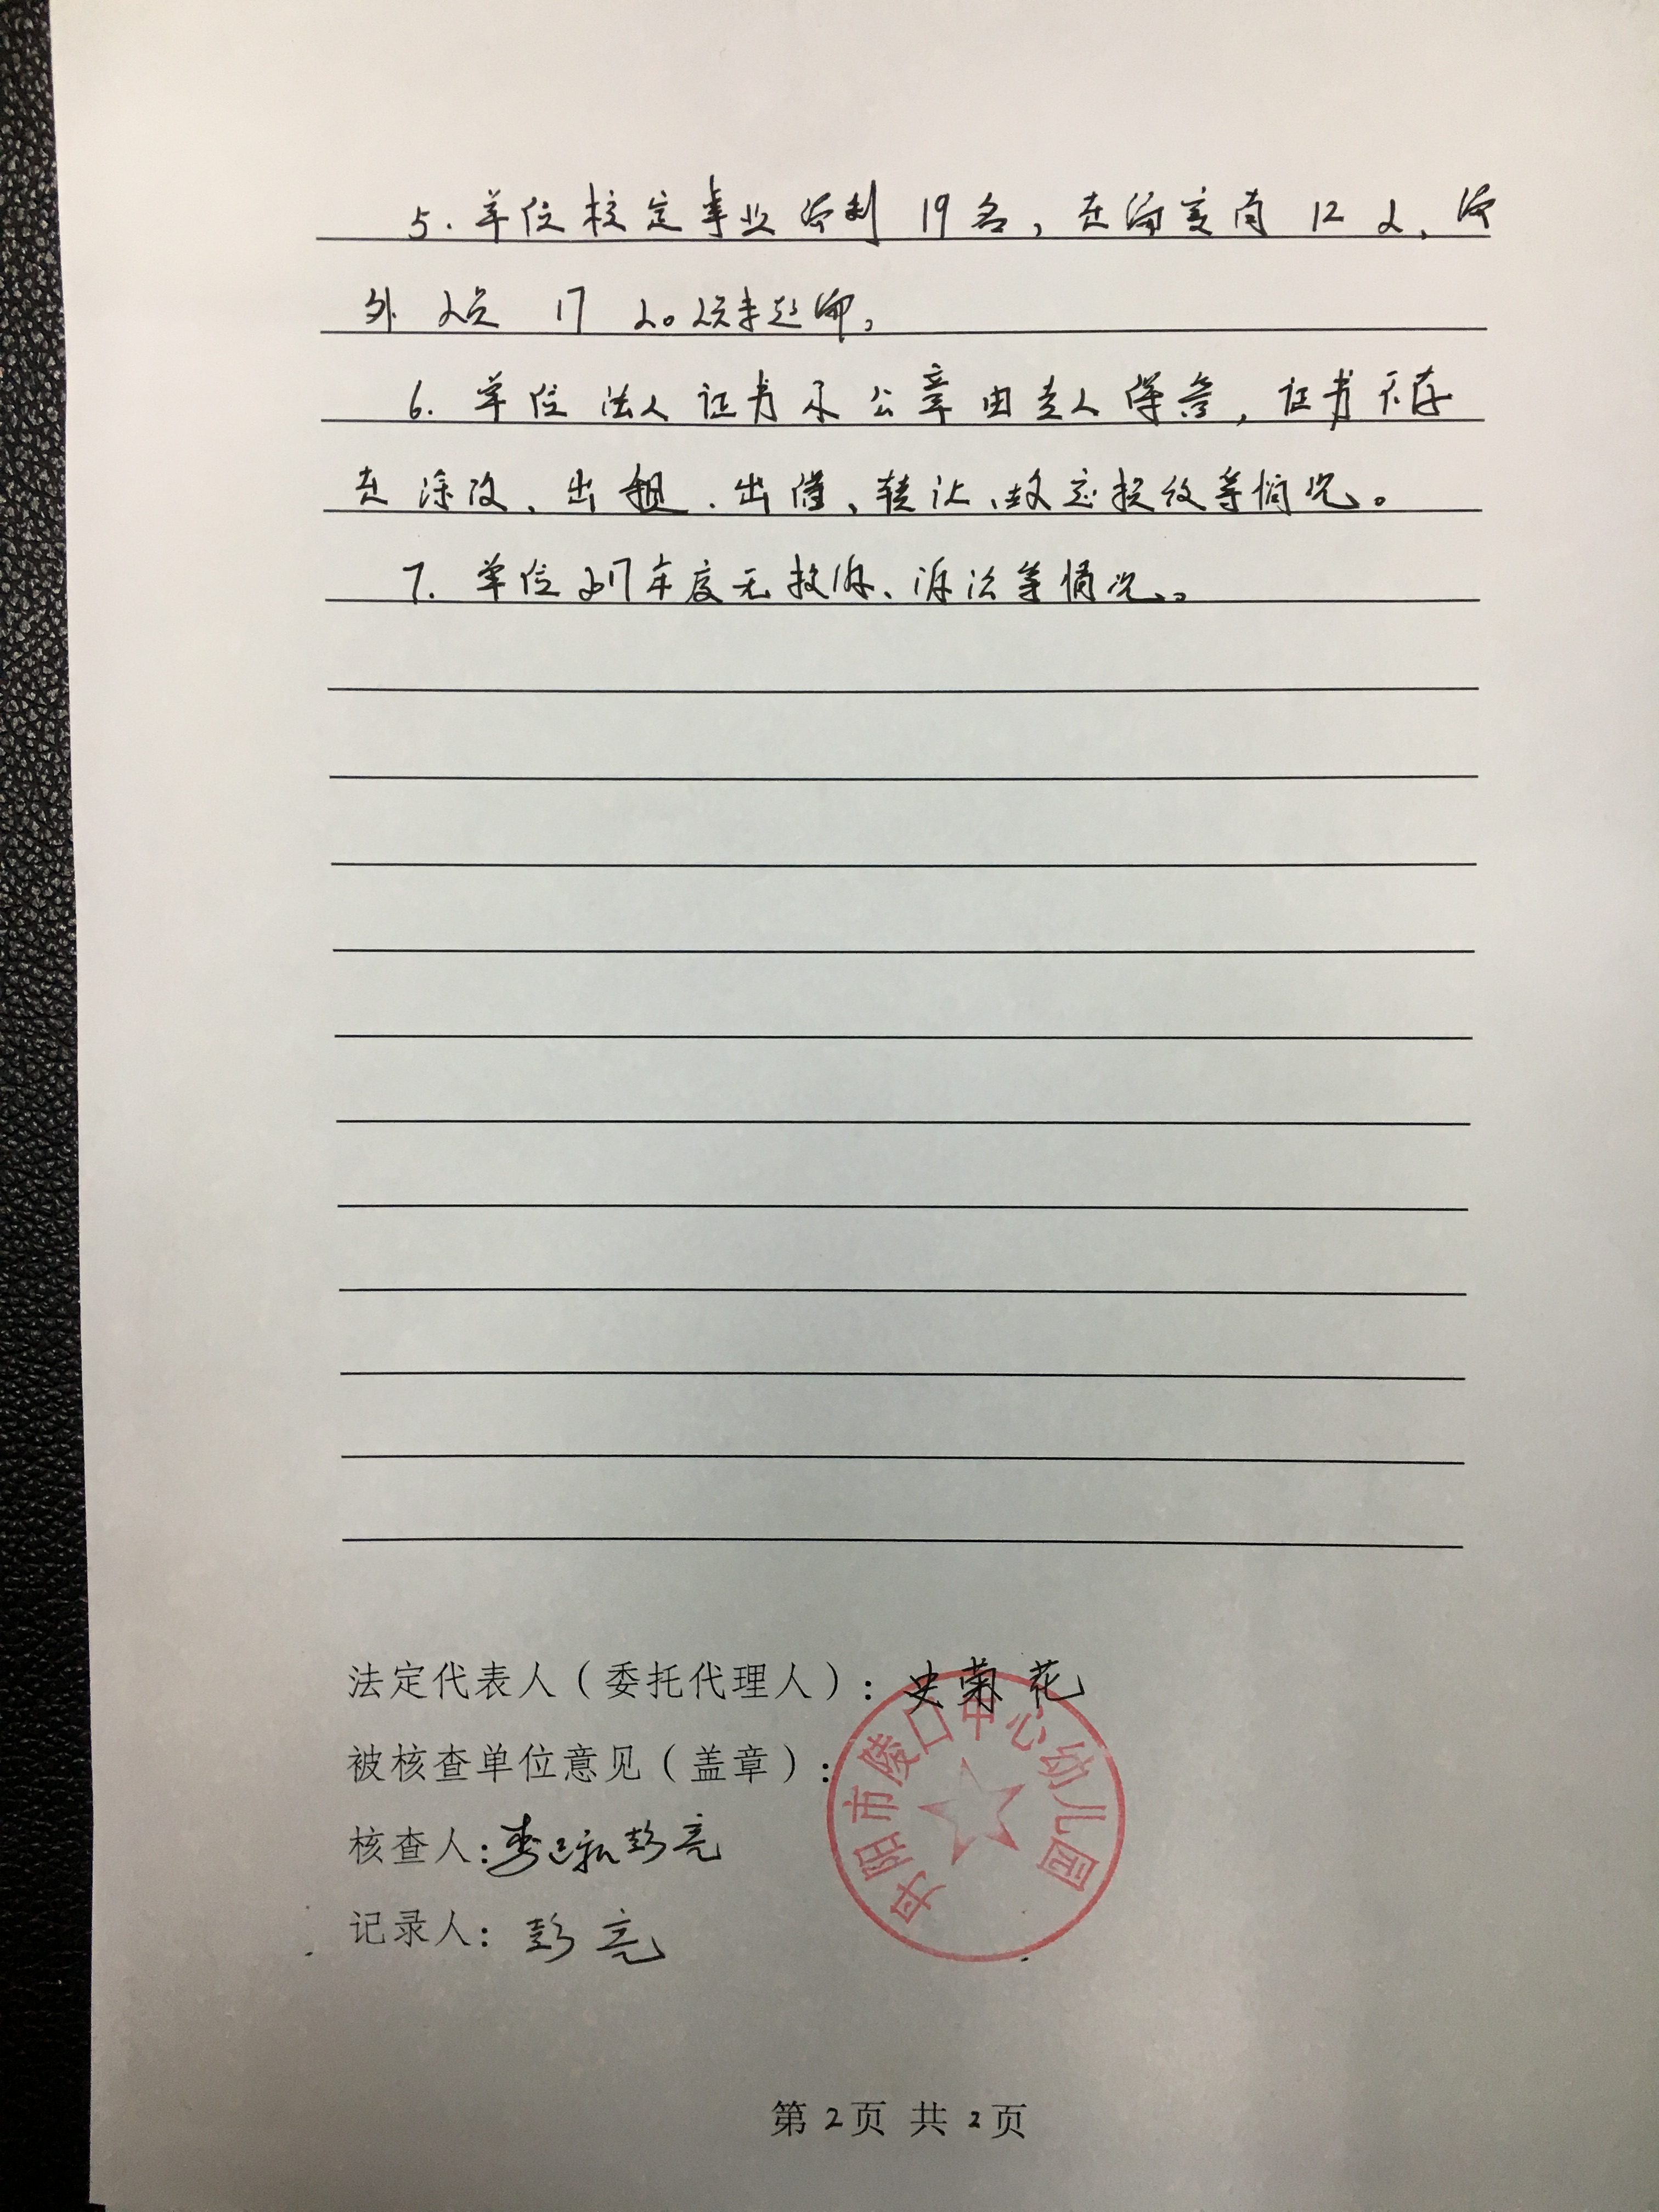 5.单位核定事业编制19名,在编在岗12人,编
外人员17人。人员未超编。
6.单位法人证书及公章由专人保管,证书不存
在涂改、出租、出借、转让、故意损毁等情况。
7.单位2017年度无投诉、诉讼等情况。
法定代表人(委托代理人):史菊花
被核查单位意见(盖章):
丹阳市陵口中心幼儿园
核查人: 彭亮
记录人:彭亮
第2页 共2页